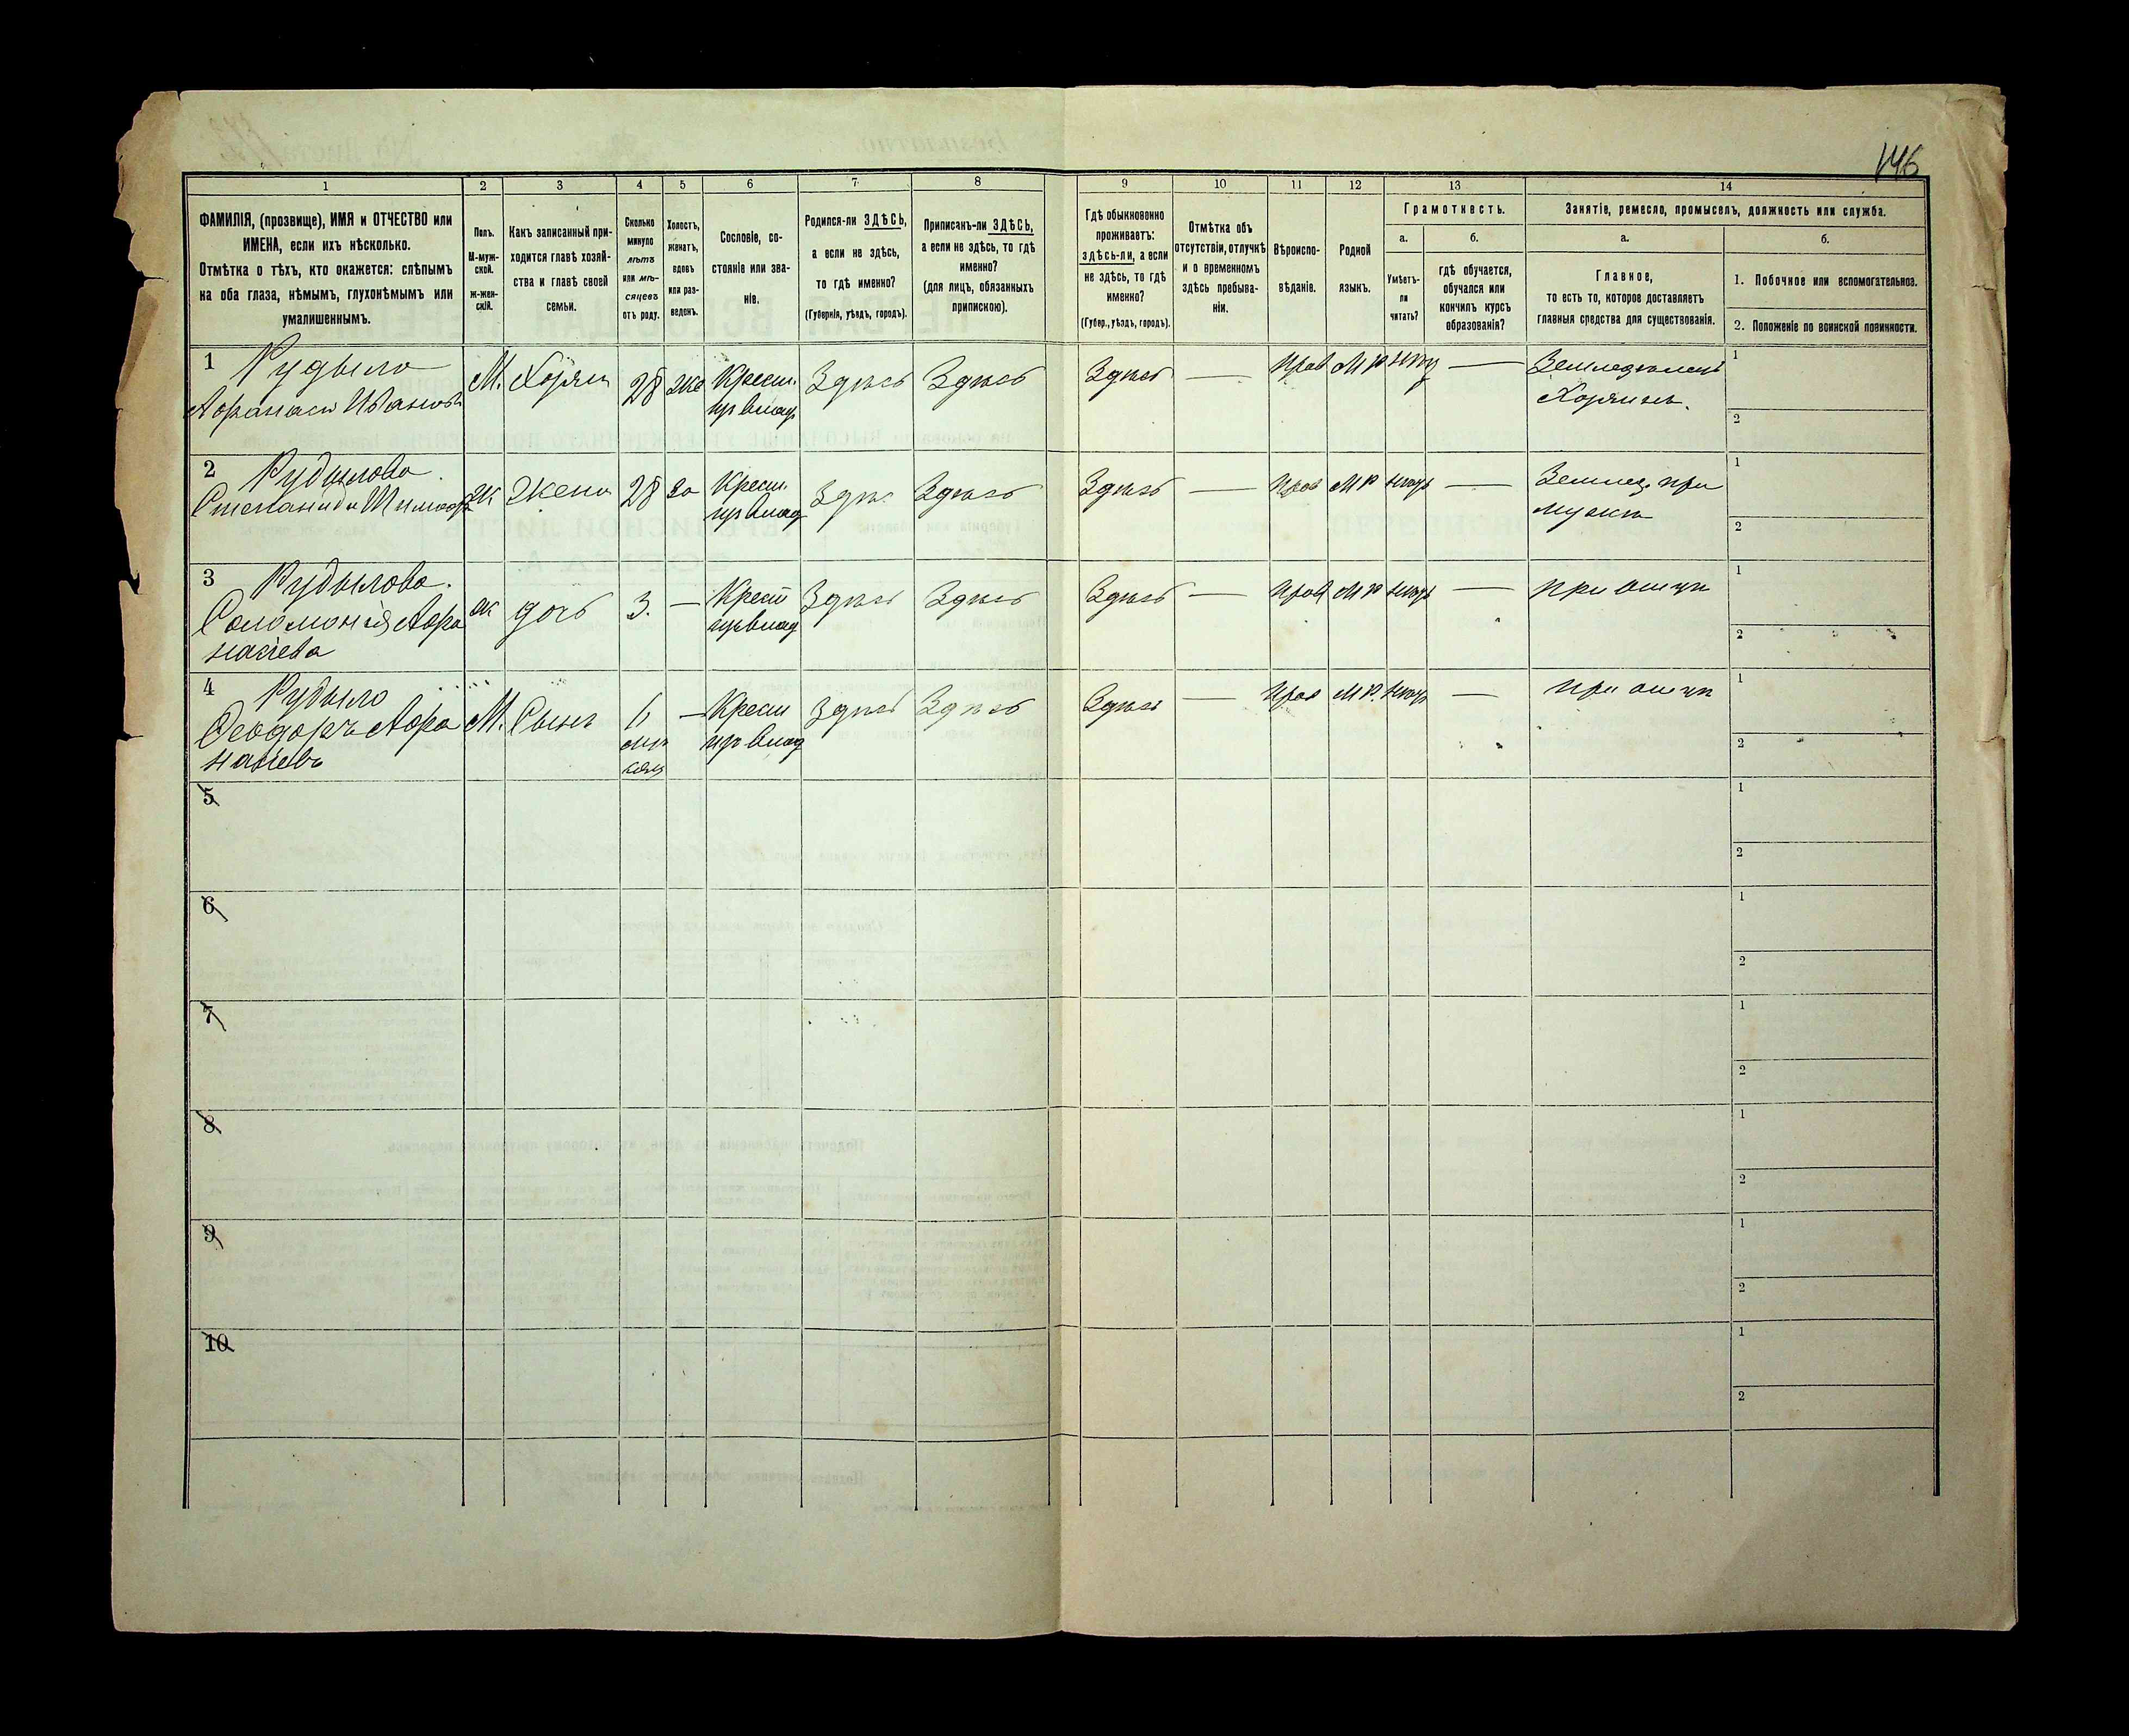 146
1 2 3 4 5 6 7 8 9 10 11 12 13 14
ФАМИЛІЯ, (прозвище), ИМЯ и ОТЧЕСТВО или
ИМЕНА, если ихъ нѣсколько.
Отмѣтка о тѣхъ, кто окажется: слѣпымъ
на оба глаза, нѣмымъ, глухонѣмымъ или
умалишеннымъ.
Полъ.
М-муж-
ской.
Ж-жен-
скій.
Какъ записанный при-
ходится главѣ хозяй-
ства и главѣ своей
семьи.
Сколько
минуло
лѣтъ
или мѣ-
сяцевъ
отъ роду.
Холостъ,
женатъ,
вдовъ
или раз-
веденъ.
Сословіе, со-
стояніе или зва-
ніе.
Родился-ли ЗДѢСЬ,
а если не здѣсь,
то гдѣ именно?
(Губернія, уѣздъ, городъ).
Приписанъ-ли ЗДѢСЬ,
а если не здѣсь, то гдѣ
именно?
(для лицъ, обязанныхъ
припискою).
Гдѣ обыкновенно
проживаетъ:
здѣсь-ли, а если
не здѣсь, то гдѣ
именно?
(Губер., уѣздъ, городъ).
Отмѣтка объ
отсутствіи, отлучкѣ
и о временномъ
здѣсь пребыва-
ніи.
Вѣроиспо-
вѣданіе.
Родной
языкъ.
Грамотность.
а.
Умѣетъ-
ли
читать?
б.
гдѣ обучается,
обучался или
кончилъ курсъ
образованія?
Занятіе, ремесло, промыселъ, должность или служба.
а.
Главное,
то есть то, которое доставляетъ
главныя средства для существованія.
б.
1. Побочное или вспомогательное.
2. Положеніе по воинской повинности.
1 Рудыло
Афанасій Ивановъ
М. Хозяин 28 же Крест. Здѣсь Здѣсь Здѣсь — Прав М Р нѣтъ — Земледѣлецъ
из влад Хозяинъ.
1
2
2 Рудылова
Степанида Тимоф
ж Жена 28 за Крест. Здѣс Здѣсь Здѣсь — Прав М Р нѣтъ — Землед. при
из влад мужѣ
1
2
3 Рудылова.
Соломонія Афа
насіева
ж дочь 3. — Крест Здѣсь Здѣсь Здѣсь — Прав М Р нѣтъ — при отцѣ
из влад
1
2
4 Рудыло
Феодоръ Афа
насіевъ
М. Сынъ мѣ — Крест Здѣсь Здѣсь Здѣсь — Прав М Р. нѣтъ — при отцѣ
сяц из влад
1
2
5
1
2
6
1
2
7
1
2
8
1
2
9
1
2
10
1
2